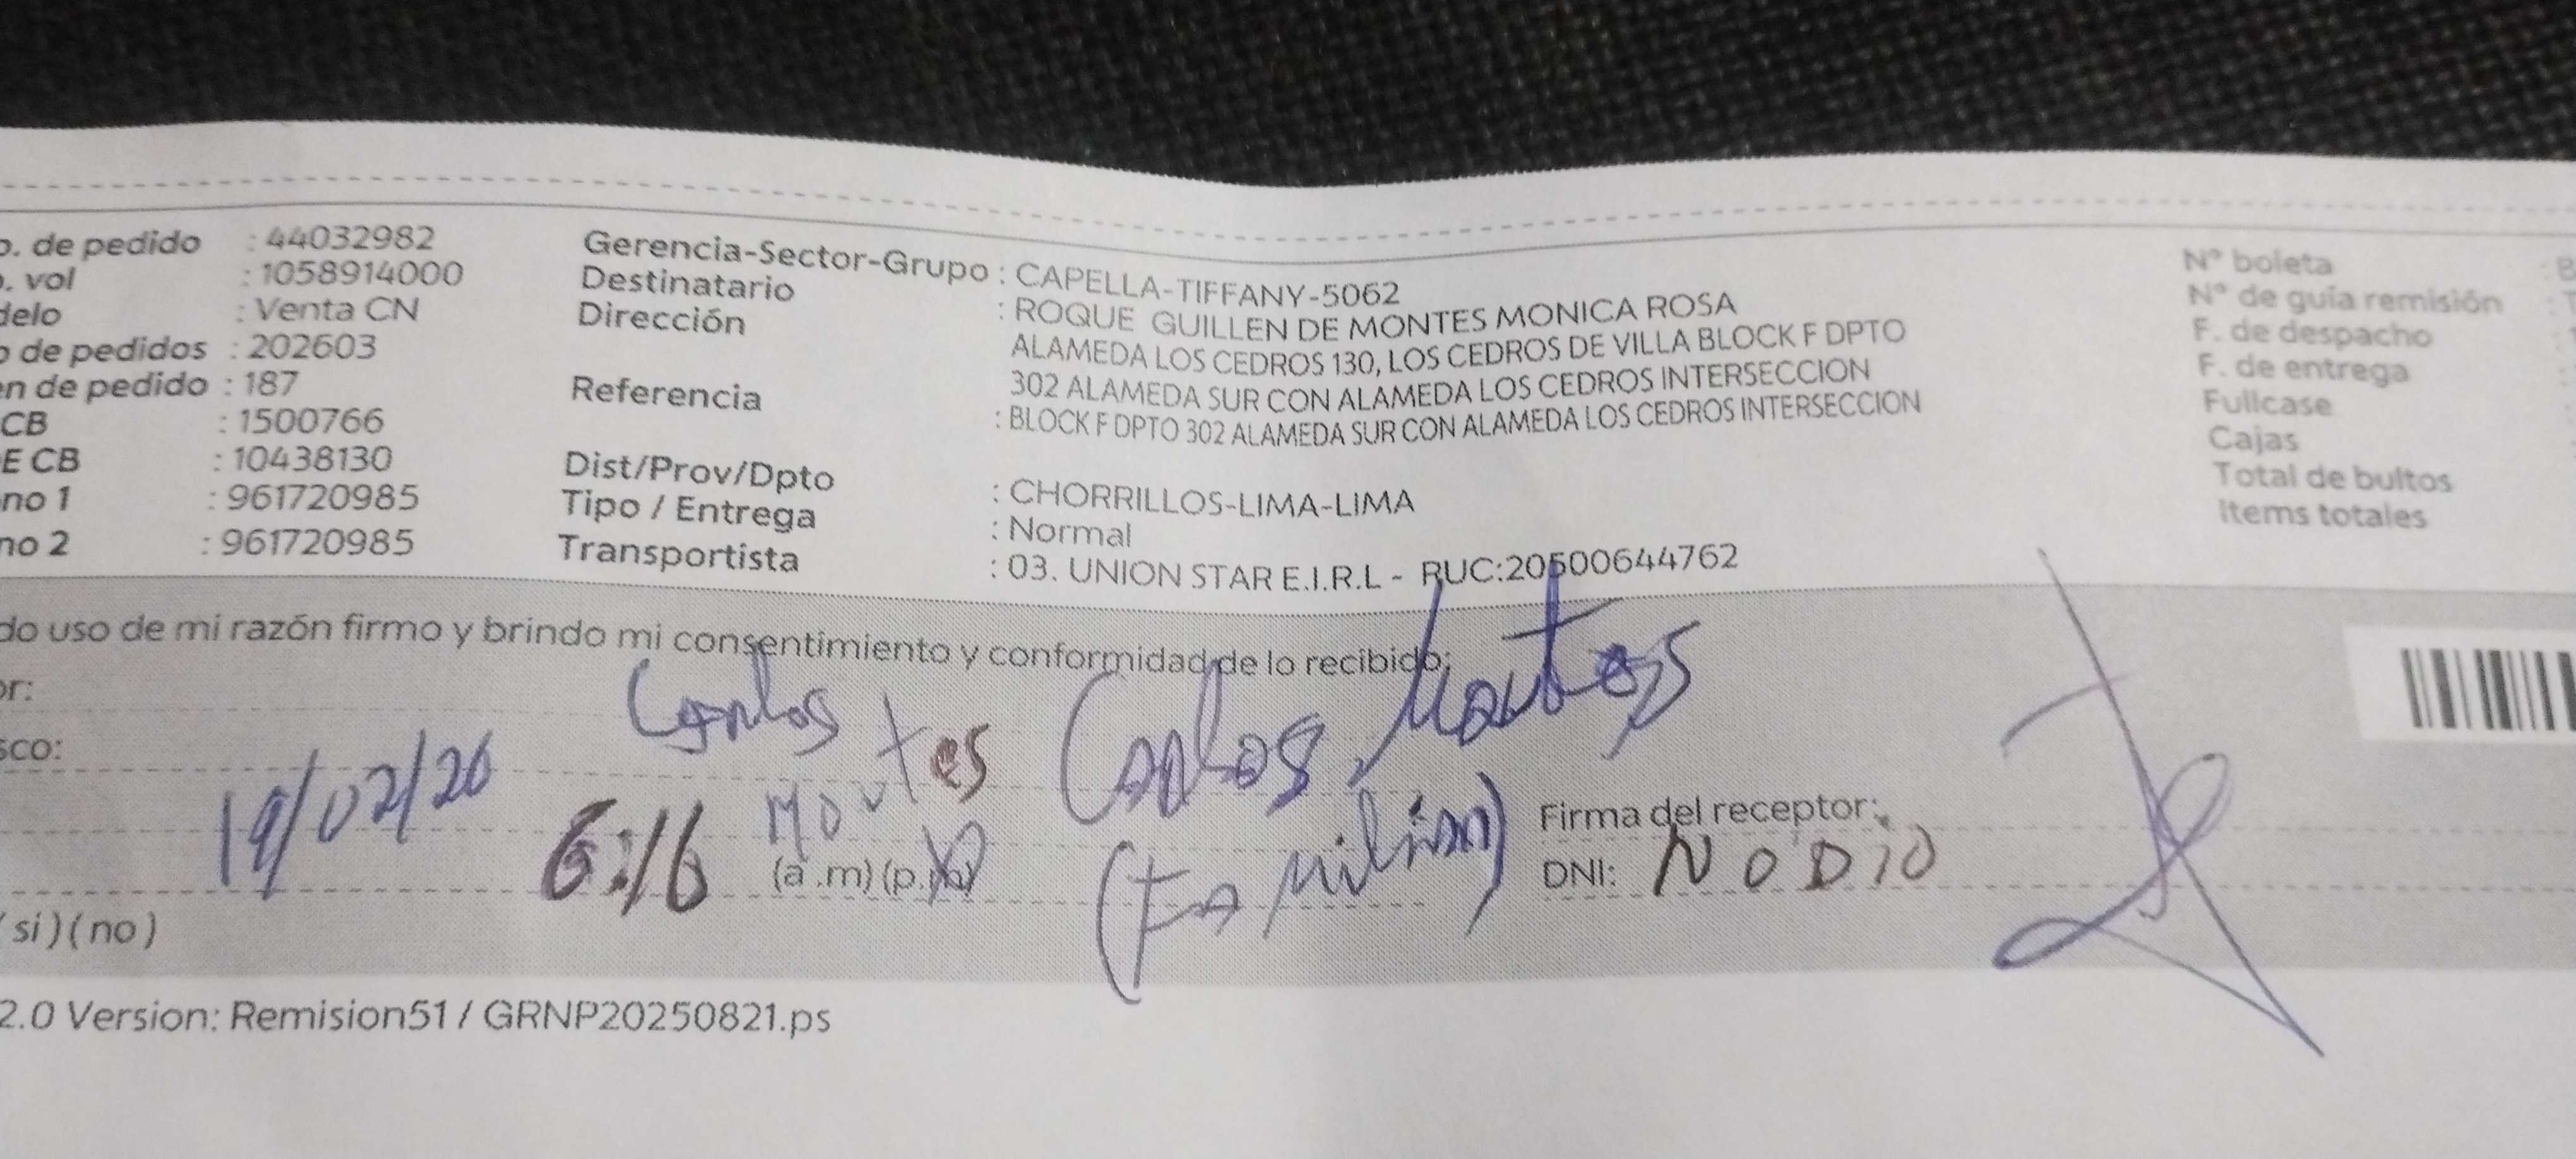 o. de pedido : 44032982
o. vol : 1058914000
delo : Venta CN
o de pedidos : 202603
en de pedido : 187
CB : 1500766
E CB : 10438130
no 1 : 961720985
no 2 : 961720985
Gerencia-Sector-Grupo : CAPELLA-TIFFANY-5062
Destinatario : ROQUE GUILLEN DE MONTES MONICA ROSA
Dirección : ALAMEDA LOS CEDROS 130, LOS CEDROS DE VILLA BLOCK F DPTO
302 ALAMEDA SUR CON ALAMEDA LOS CEDROS INTERSECCION
Referencia : BLOCK F DPTO 302 ALAMEDA SUR CON ALAMEDA LOS CEDROS INTERSECCION
Dist/Prov/Dpto : CHORRILLOS-LIMA-LIMA
Tipo / Entrega : Normal
Transportista : 03. UNION STAR E.I.R.L - RUC:20500644762
N° boleta :
N° de guía remisión :
F. de despacho :
F. de entrega :
Fullcase
Cajas
Total de bultos
Items totales
do uso de mi razón firmo y brindo mi consentimiento y conformidad de lo recibido:
or:
sco:
Carlos Montes
Carlos Montes
(Familiar)
19/02/26
6:16 (a.m) (p.m)
Firma del receptor:
DNI: NO DIO
si ) ( no )
2.0 Version: Remision51 / GRNP20250821.ps